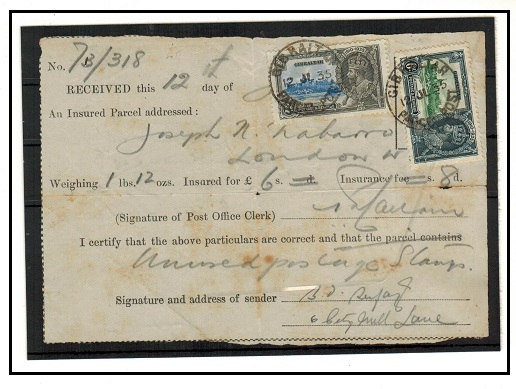 No. 7B/318
RECEIVED this 12th day of
An Insured Parcel addressed:
Joseph N. Nabarro
London W
Weighing 1 lbs. 12 ozs. Insured for £ 6 s. d. Insurance fee s. 8 d.
(Signature of Post Office Clerk)
I certify that the above particulars are correct and that the parcel contains
Unused postage Stamps.
Signature and address of sender B. D.
6 City Mill Lane
GIBRALTAR
12 JL 35
GIBRALTAR
12 JL 35
GIBRALTAR